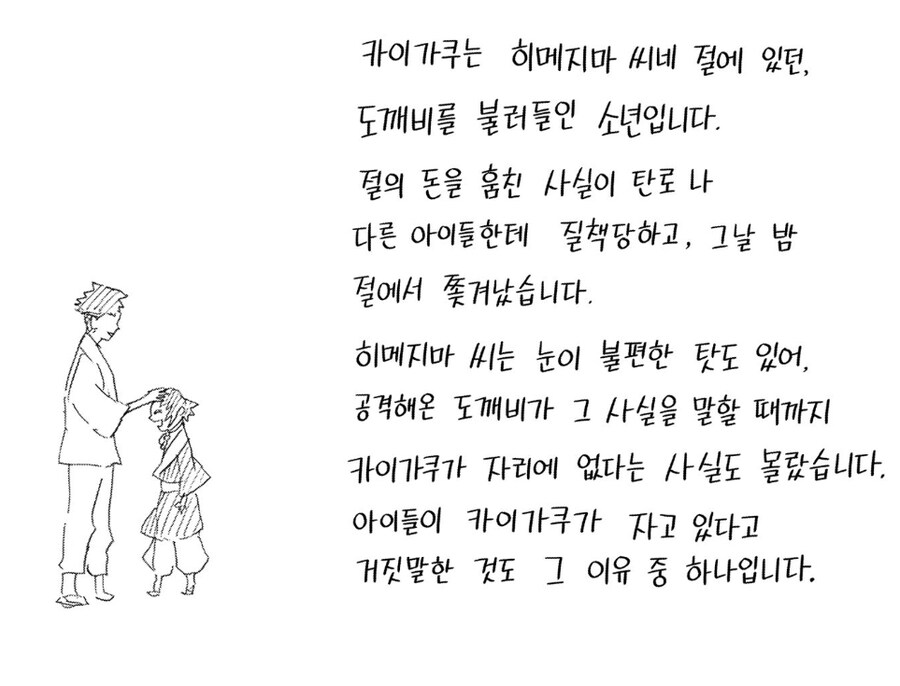 카이가쿠는 히메지마 씨네 절에 있던,
도깨비를 불러들인 소년입니다.
절의 돈을 훔친 사실이 탄로 나
다른 아이들한테 질책당하고, 그날 밤
절에서 쫓겨났습니다.
히메지마 씨는 눈이 불편한 탓도 있어,
공격해온 도깨비가 그 사실을 말할 때까지
카이가쿠가 자리에 없다는 사실도 몰랐습니다.
아이들이 카이가쿠가 자고 있다고
거짓말한 것도 그 이유 중 하나입니다.